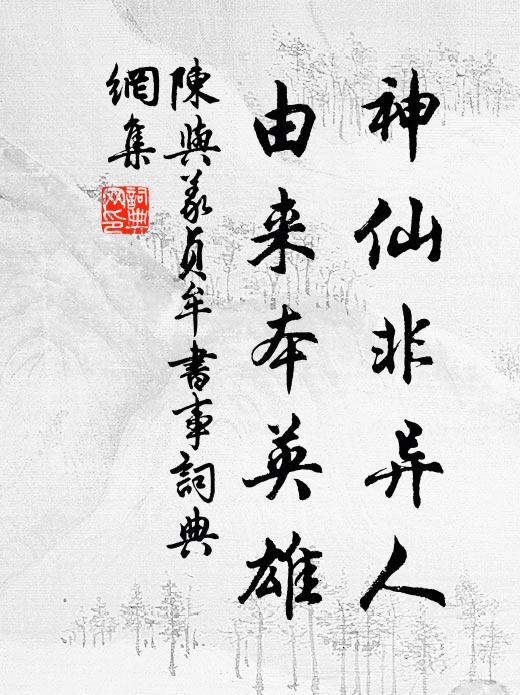 神仙非异人
由来本英雄
陳與義貞牟書事詞典
網集
詞典
网印